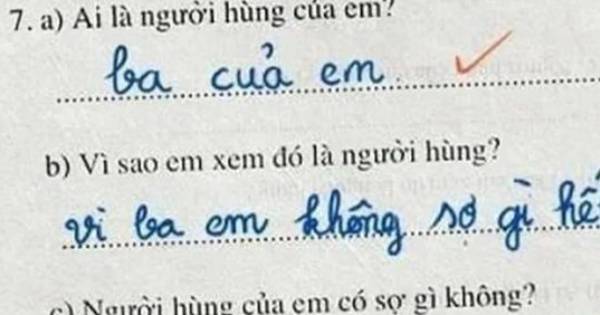 7. a) Ai là người hùng của em?
ba cuả em
b) Vì sao em xem đó là người hùng?
vì ba em không sợ gì hế
c) Người hùng của em có sợ gì không?